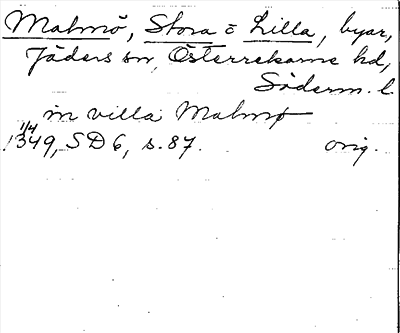 Malmö, Stora o Lilla, byar,
Jäders sn, Österrekarne hd,
Söderm. l.
in villa Malmø
1/4
1349, SD 6, s. 87. orig.